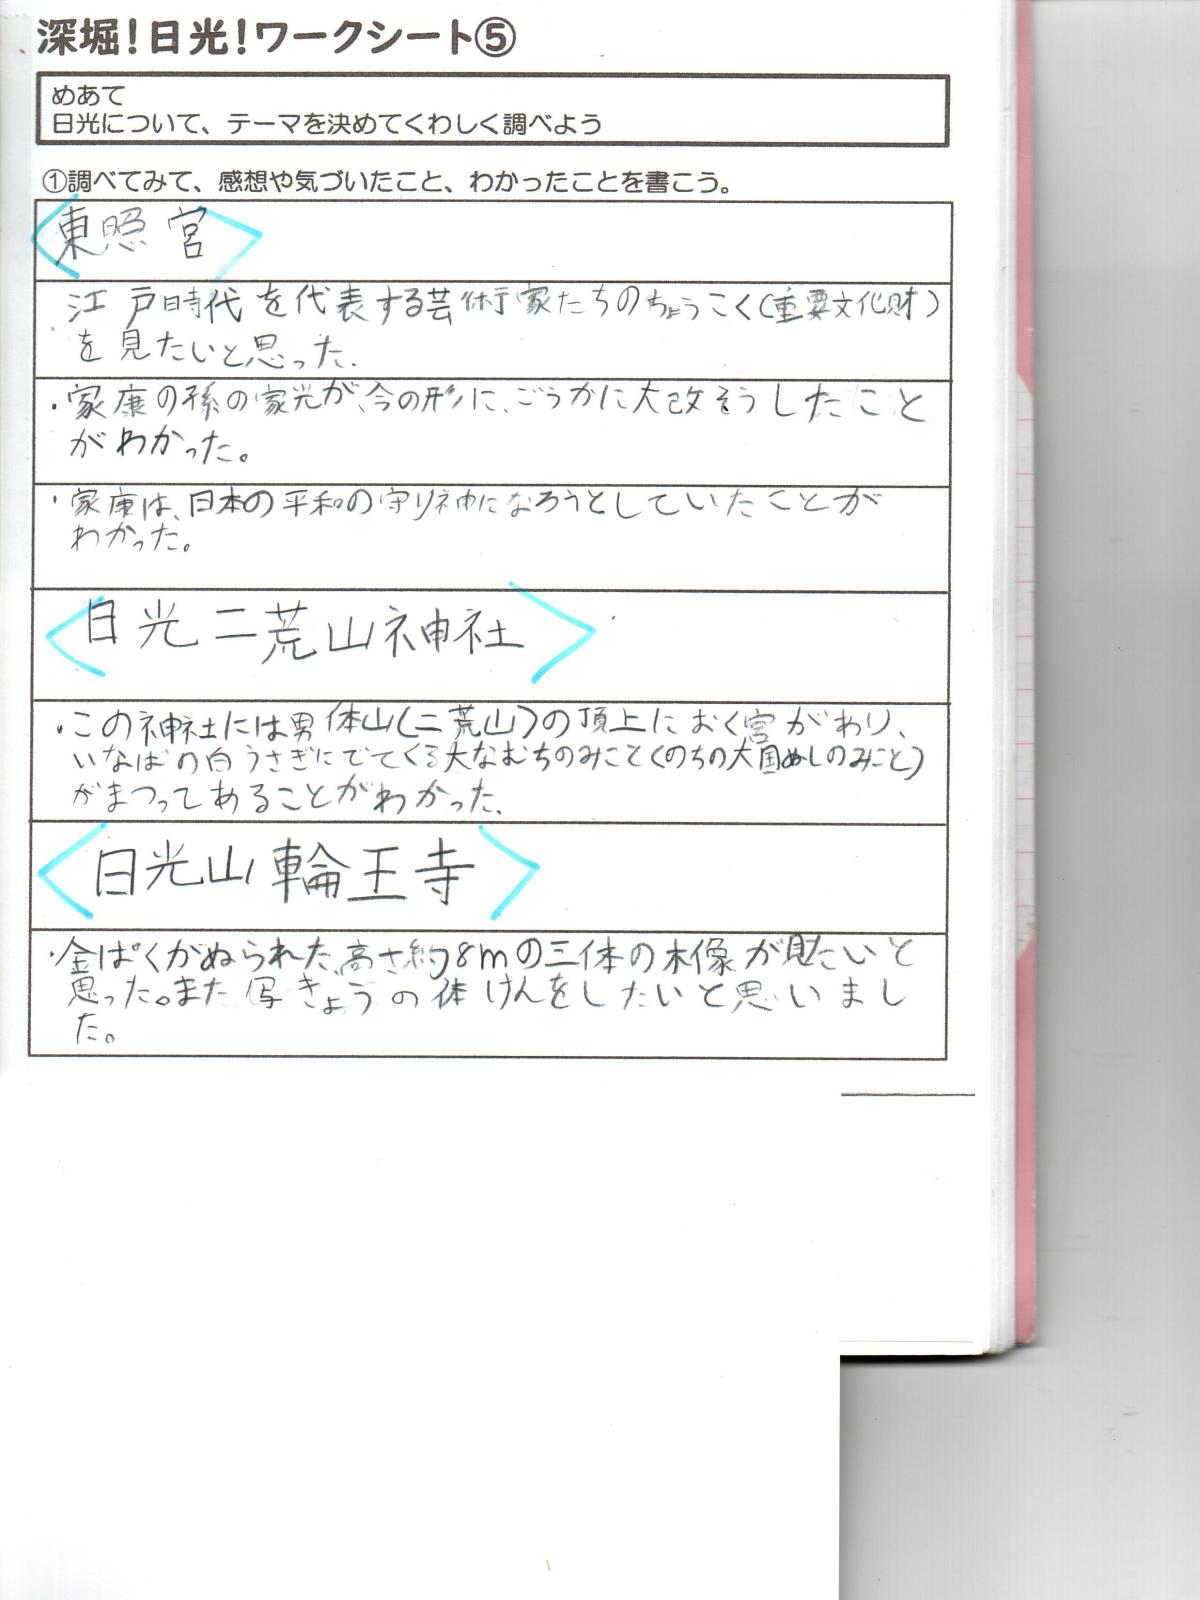 深堀！日光！ワークシート⑤
めあて
日光について、テーマを決めてくわしく調べよう
①調べてみて、感想や気づいたこと、わかったことを書こう。
東照宮
江戸時代を代表する芸術家たちのちょうこく(重要文化財)
を見たいと思った.
・家康の孫の家光が、今の形に、ごうかに大改そうしたこと
がわかった。
・家康は、日本の平和の守り神になろうとしていたことが
わかった。
日光二荒山神社
・この神社には男体山(二荒山)の頂上におく宮がわり、
いなばの白うさぎにでてくる大なむちのみこと(のちの大国ぬしのみこと)
がまつってあることがわかった.
日光山輪王寺
・金ぱくがぬられた、高さ約8mの三体の木像が見たいと
思った。また写きょうの体けんをしたいと思いまし
た。